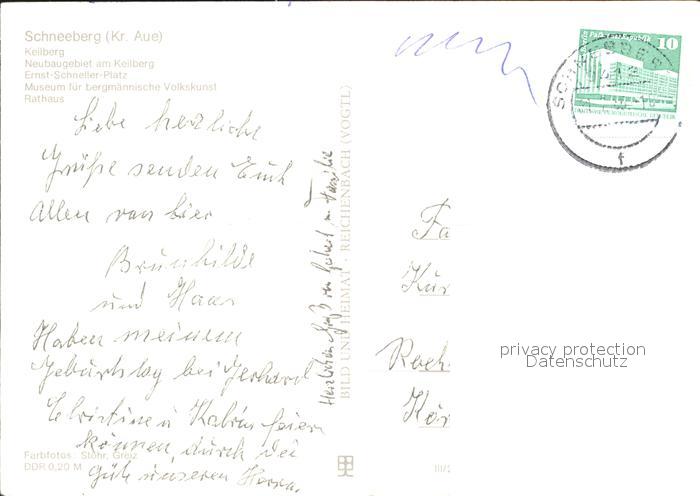 Schneeberg (Kr. Aue)
Keilberg
Neubaugebiet am Keilberg
Ernst-Schneller-Platz
Museum für bergmännische Volkskunst
Rathaus
Liebe herzliche
Grüße senden Euch
Allen von hier
Brunhilde
und Hans
Haben meinem
Geburtstag bei Gerhard
Christine u Katrin feiern
können, durch die
Güte unseren Herrn.
Farbfotos: Stöhr, Greiz
DDR 0,20 M
Herzlichen Gruß von Gerhard u. Familie
BILD UND HEIMAT · REICHENBACH (VOGTL)
III/
10
SCHNEEBERG
Fa
Kür
Rach
Kör
privacy protection
Datenschutz